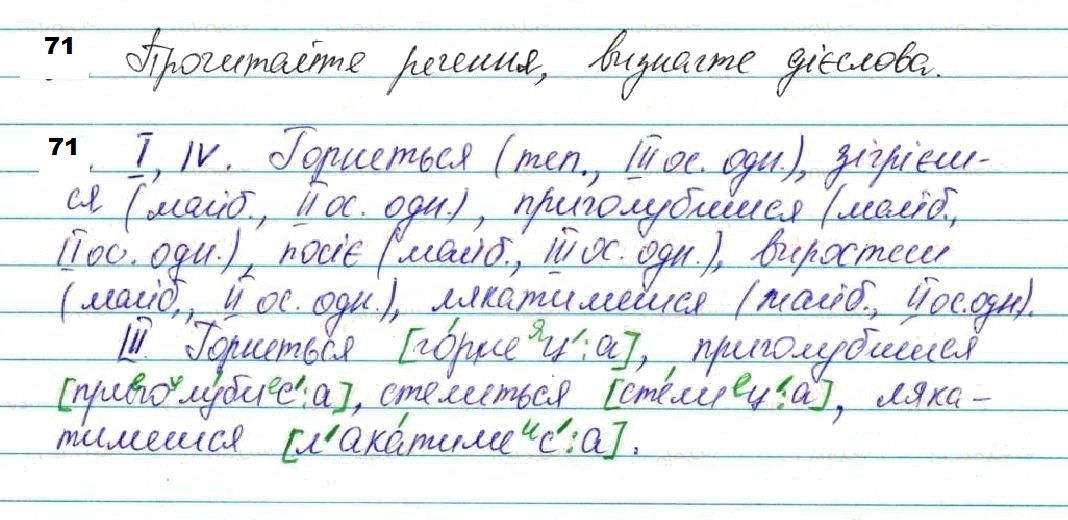 71 Прочитайте речення, визначте дієслова.
71. І, IV. Горнеться (теп., ІІІ ос. одн.), зігрієш-
ся (майб., ІІ ос. одн.), приголубишся (майб.,
ІІ ос. одн.), посіє (майб., ІІІ ос. одн.), виростеш
(майб., ІІ ос. одн.), лякатимешся (майб., ІІ ос. одн).
ІІІ. Горнеться [го́рнеиц':а], приголубишся
[приеголу́биес':а], стелиться [сте́лиец':а], ляка-
тимешся [л'ака́тимеис':а].